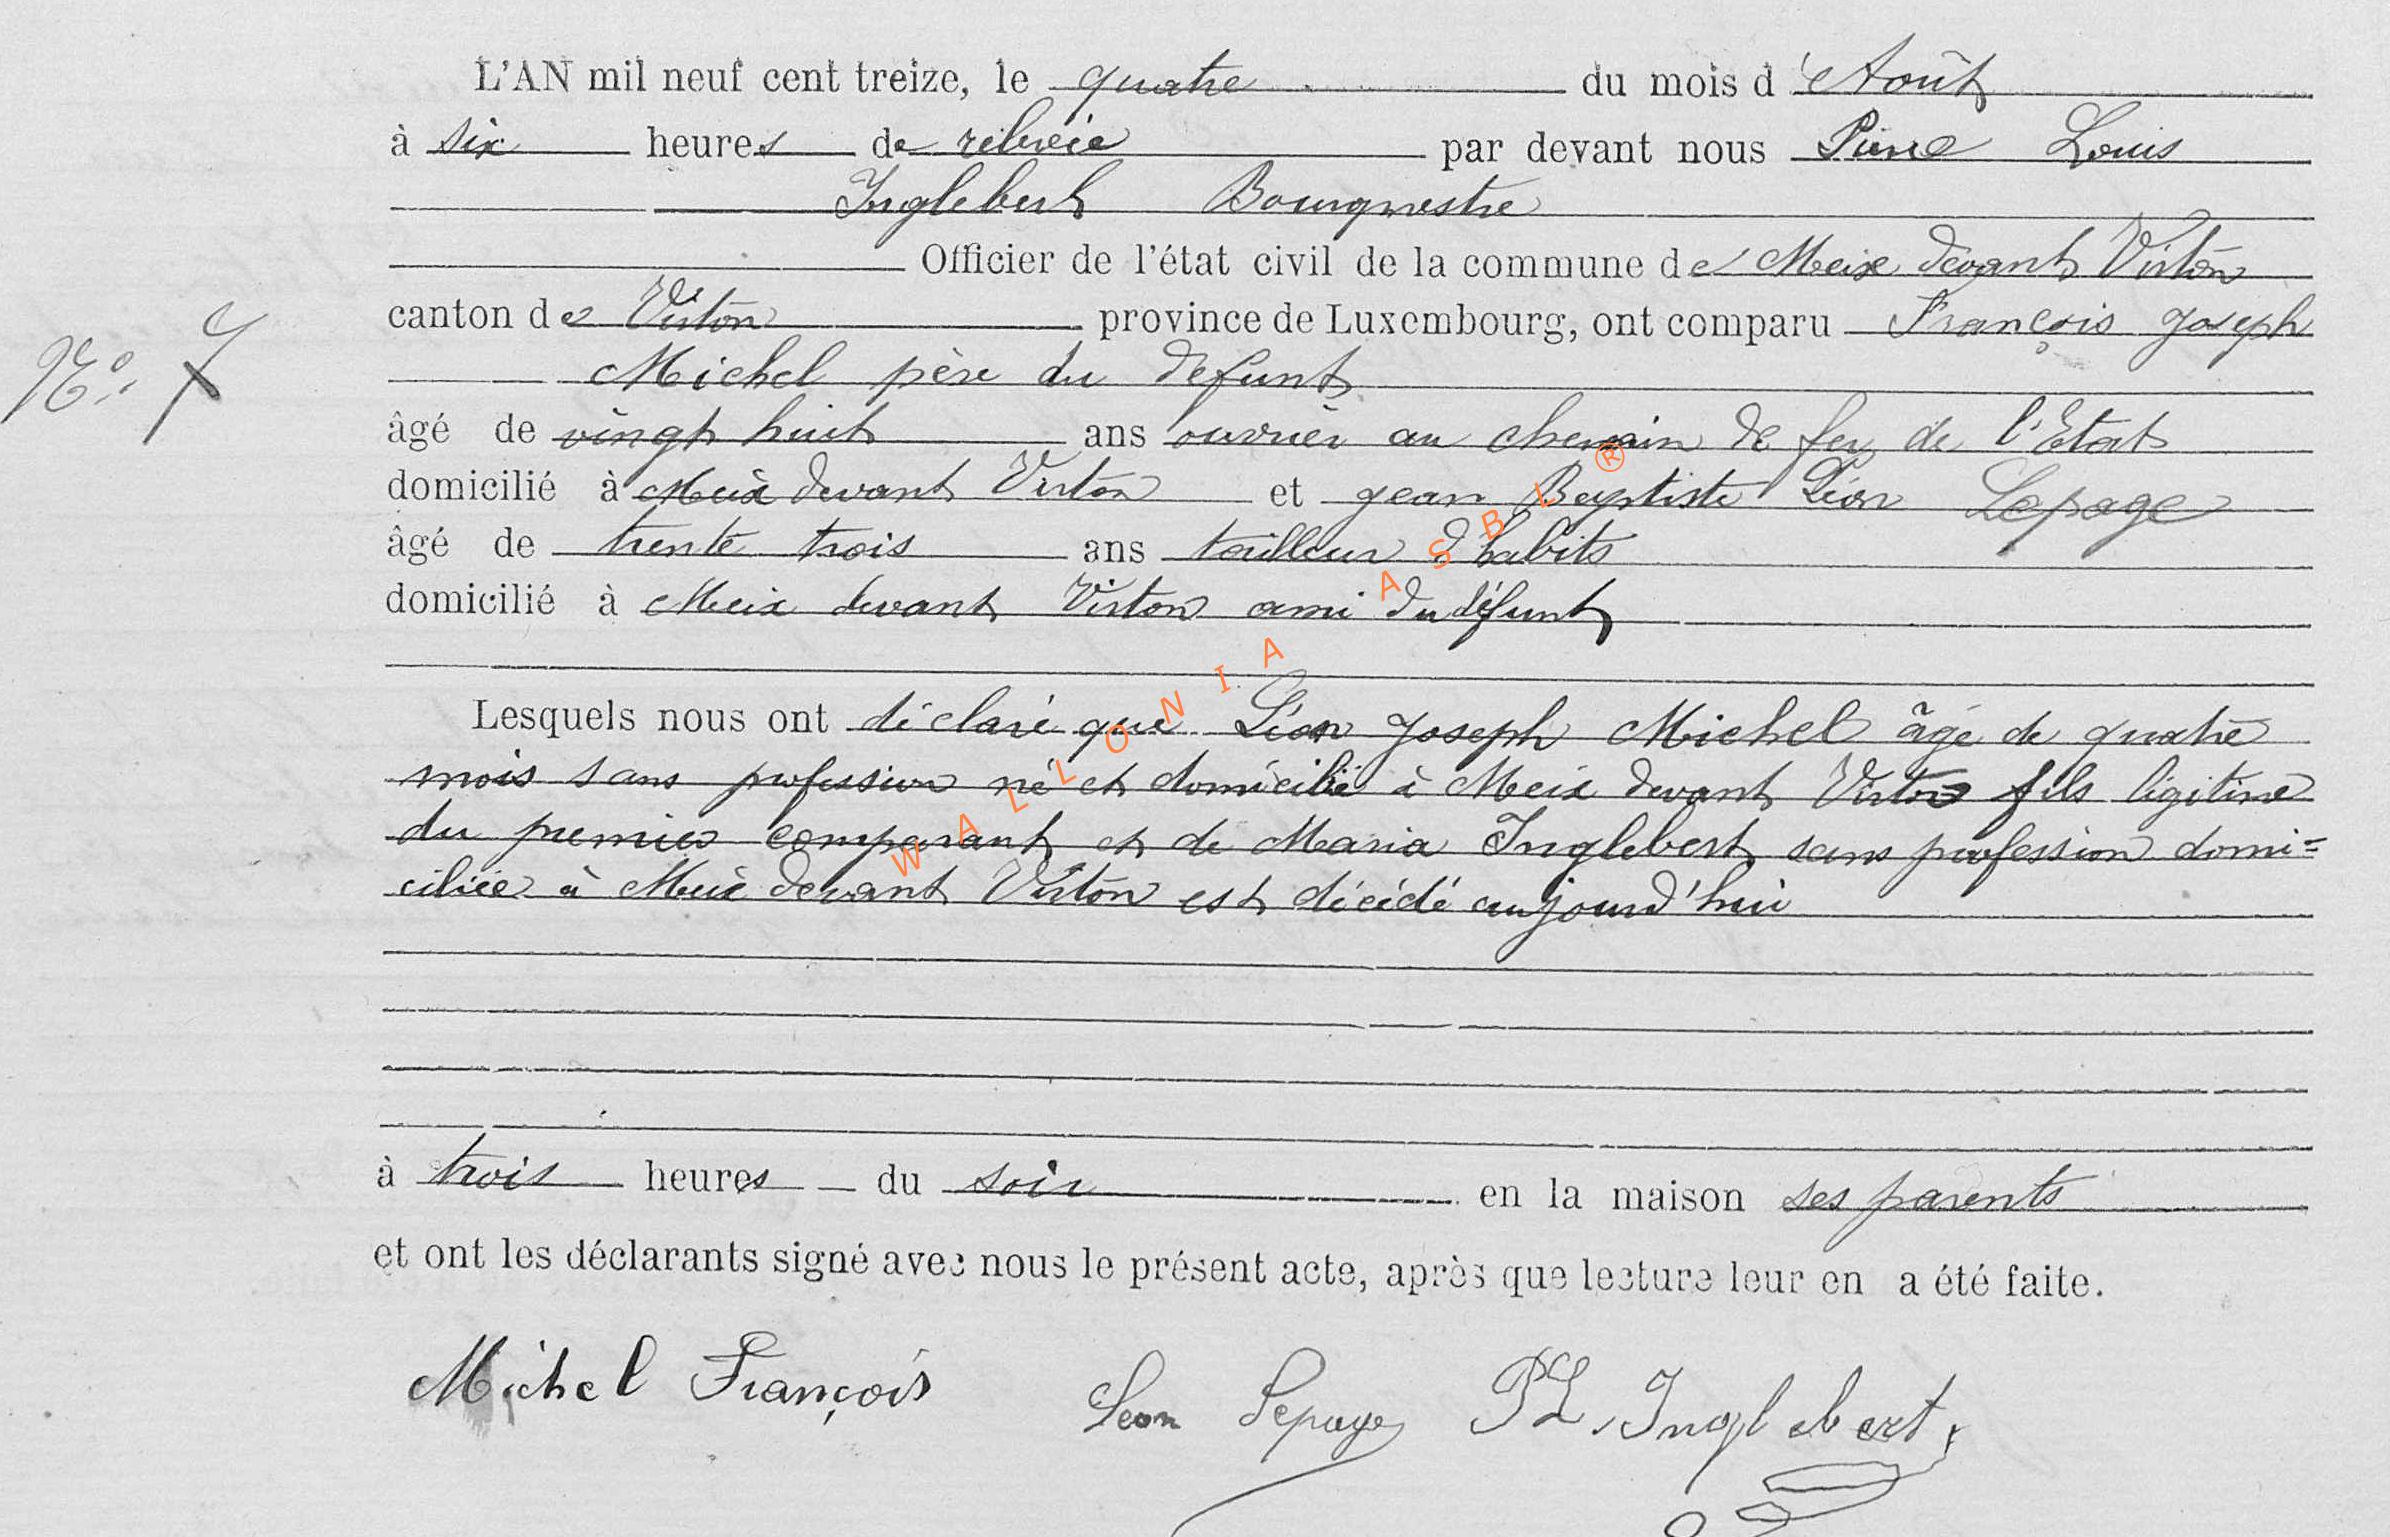 L'AN mil neuf cent treize, le quatre du mois d'Août
à six heures de relevée par devant nous Pierre Louis
Inglebert Bourgmestre
Officier de l'état civil de la commune de Meix devant Virton
canton de Virton province de Luxembourg, ont comparu François Joseph
N° 7
Michel père du défunt
âgé de vingt huit ans ouvrier au chemin de fer de l'Etat
domicilié à Meix devant Virton et Jean Baptiste Léon Lepage
âgé de trente trois ans tailleur d'habits
domicilié à Meix devant Virton ami du défunt
Lesquels nous ont déclaré que Léon Joseph Michel âgé de quatre
mois sans profession né et domicilié à Meix devant Virton fils légitime
du premier comparant et de Maria Inglebert sans profession domi=
ciliée à Meix devant Virton est décédé aujourd'hui
à trois heures du soir en la maison ses parents
et ont les déclarants signé avec nous le présent acte, après que lecture leur en a été faite.
Michel François Léon Lepage PL. Inglebert
WALLONIA ASBL ®